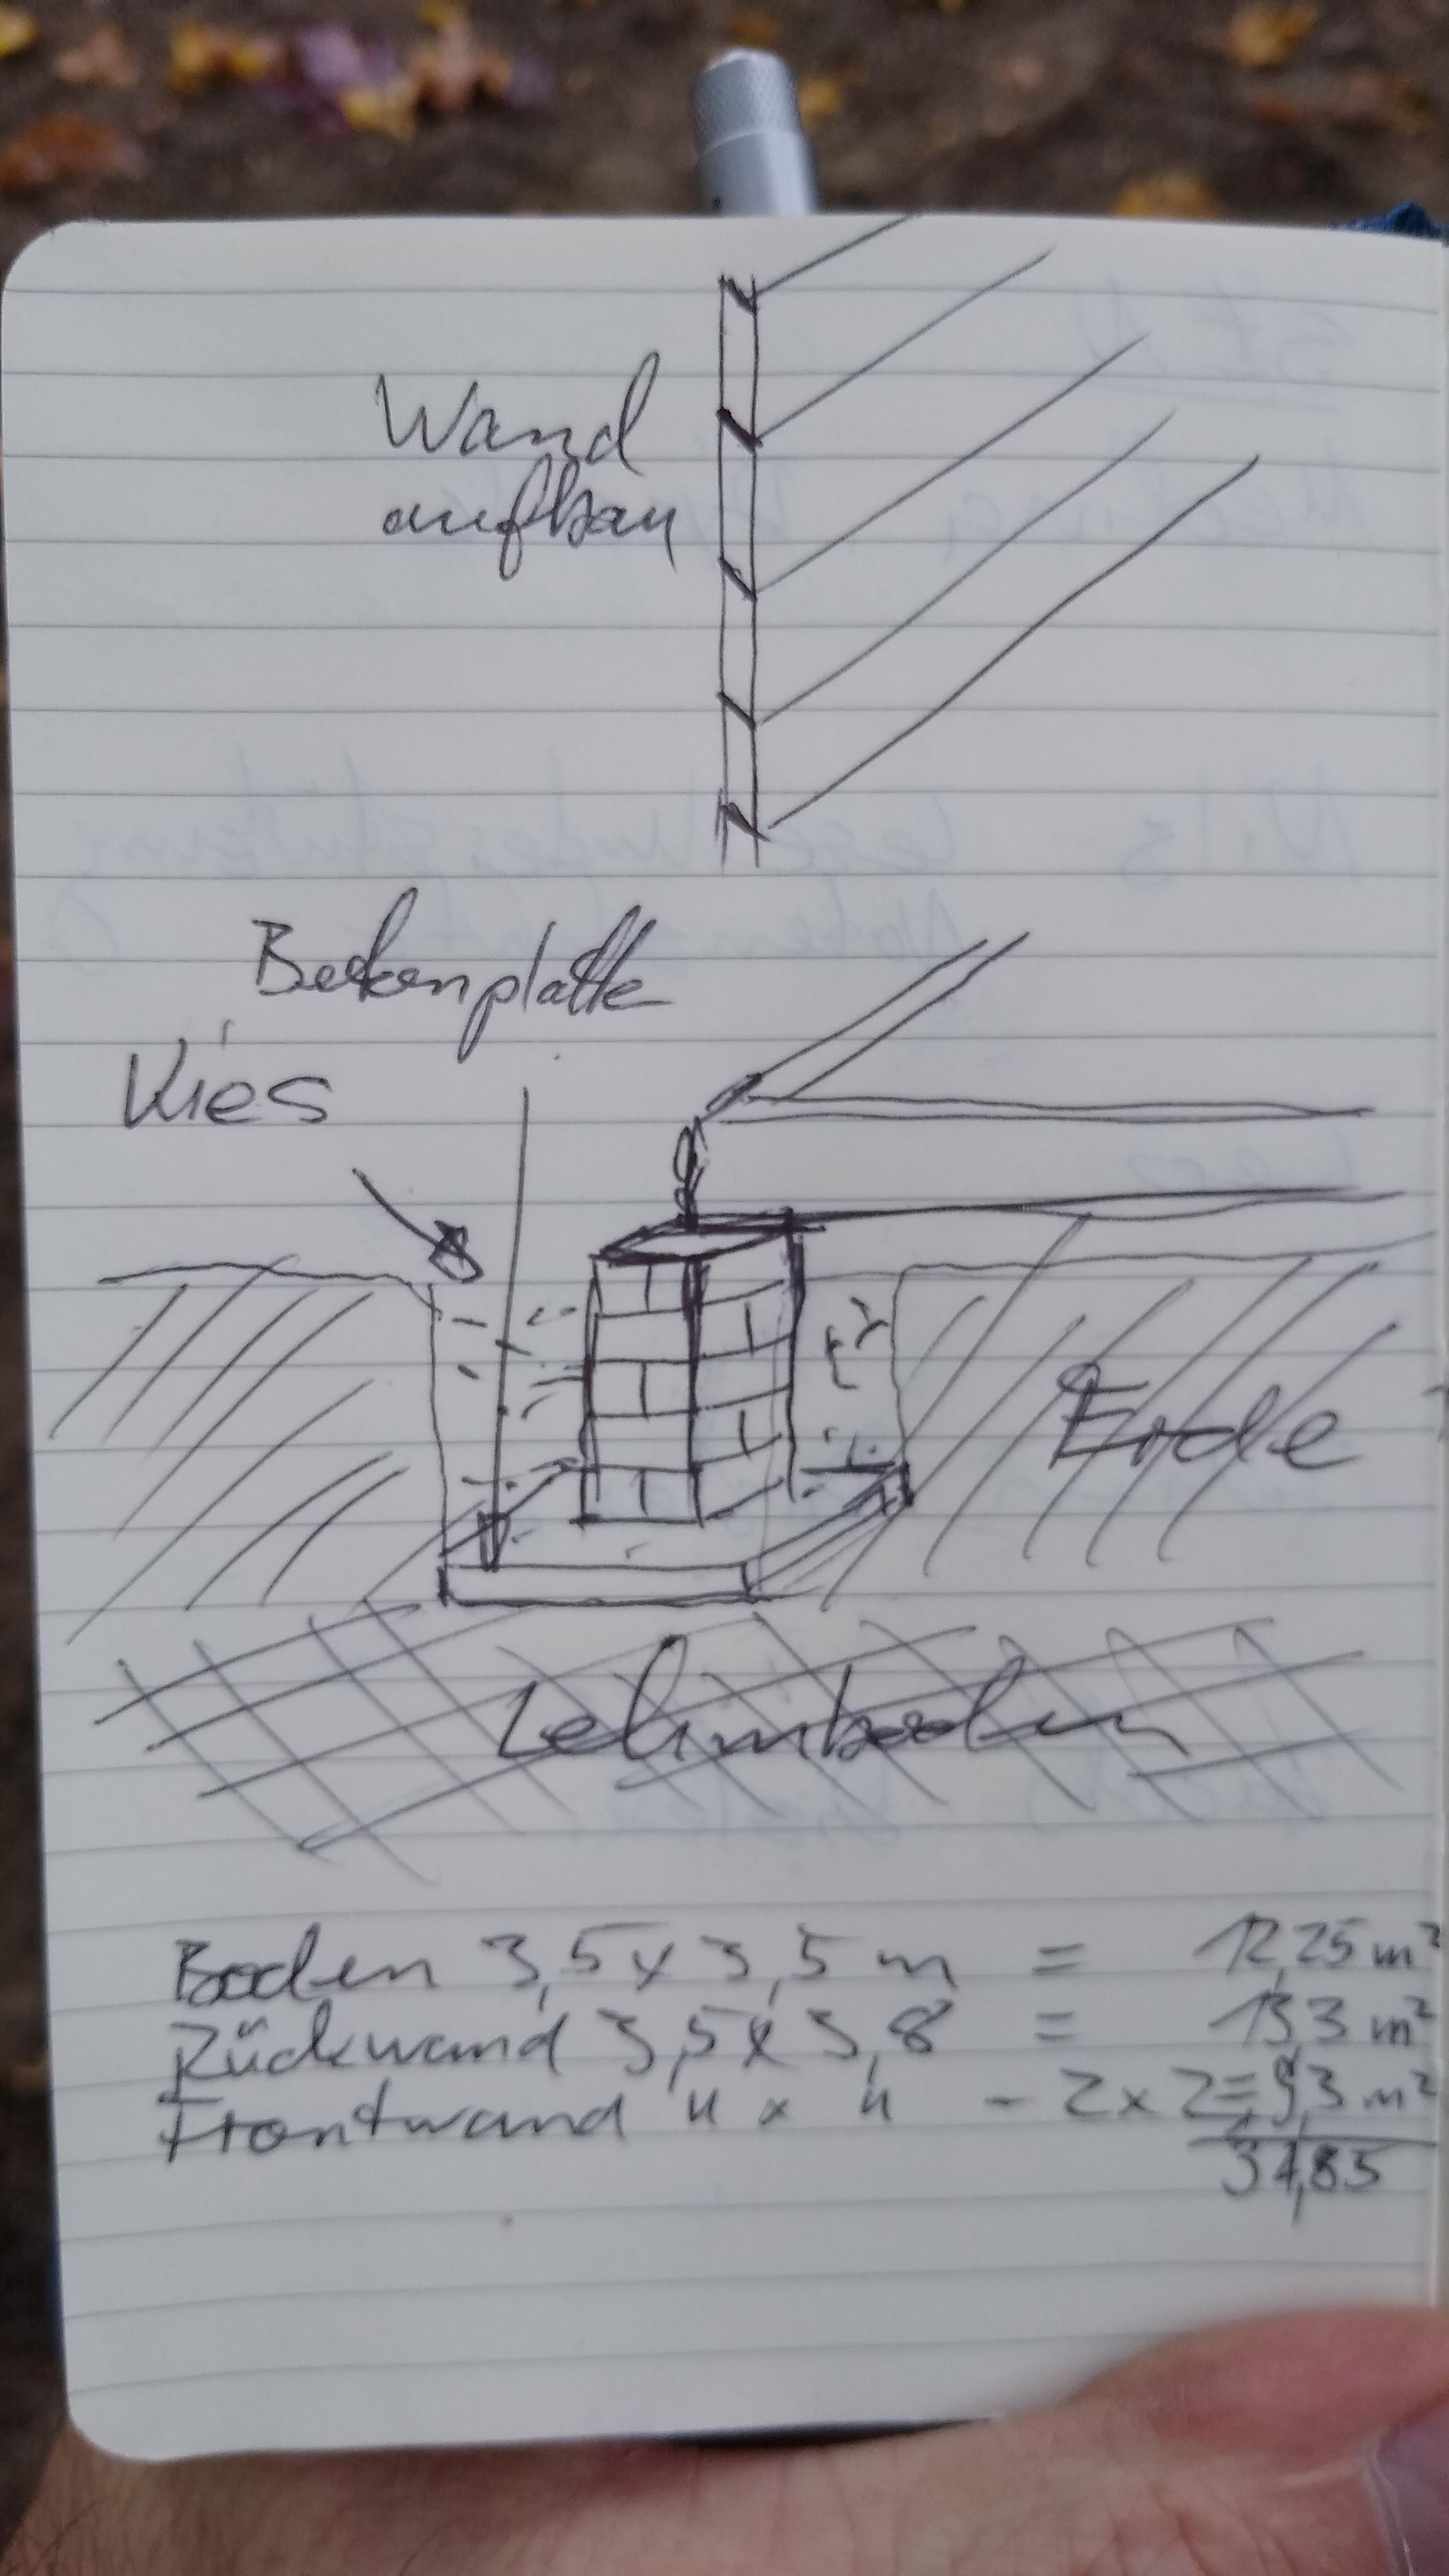 Wand
aufbau
Betonplatte
Kies
Erde
Lehmboden
Boden 3,5 x 3,5 m = 12,25 m²
Rückwand 3,5 x 3,8 = 13,3 m²
Frontwand " x " - 2 x 2 = 9,3 m²
34,85